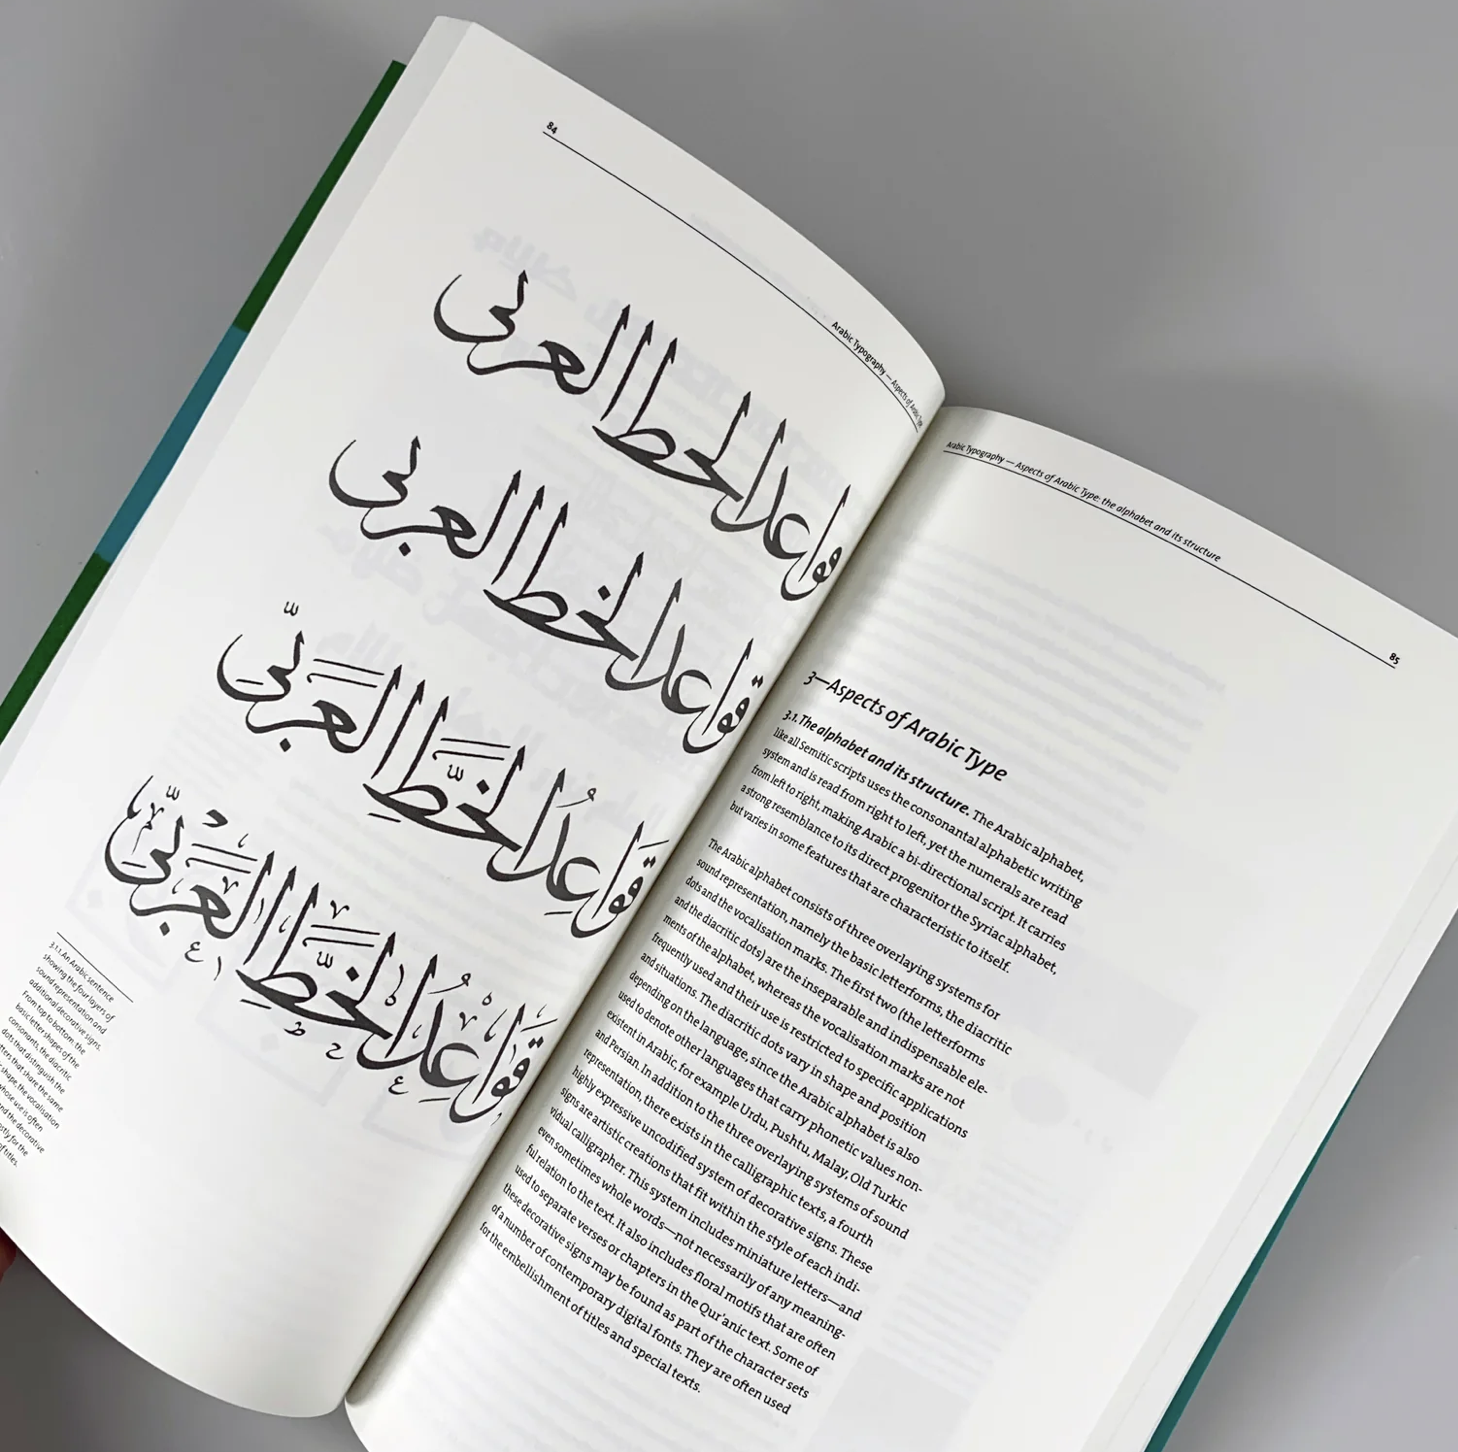 84
Arabic Typography — Aspects of Arabic Type
قواعد الخط العربي
قواعد الخط العربي
قَوَاعِدُ الخَطِّ العَرَبِيِّ
قَوَاعِدُ الخَطِّ العَرَبِيِّ
3.1.1. An Arabic sentence
showing the four layers of
sound representation and
additional decorative signs.
From top to bottom: the
basic letter shapes of the
consonants, the diacritic
dots that distinguish the
letters that share the same
shape, the vocalisation
whose use is often
and the decorative
mostly for the
of titles.
Arabic Typography — Aspects of Arabic Type: the alphabet and its structure
85
3—Aspects of Arabic Type
3.1. The alphabet and its structure. The Arabic alphabet,
like all Semitic scripts uses the consonantal alphabetic writing
system and is read from right to left, yet the numerals are read
from left to right, making Arabic a bi-directional script. It carries
a strong resemblance to its direct progenitor the Syriac alphabet,
but varies in some features that are characteristic to itself.
The Arabic alphabet consists of three overlaying systems for
sound representation, namely the basic letterforms, the diacritic
dots and the vocalisation marks. The first two (the letterforms
and the diacritic dots) are the inseparable and indispensable ele-
ments of the alphabet, whereas the vocalisation marks are not
frequently used and their use is restricted to specific applications
and situations. The diacritic dots vary in shape and position
depending on the language, since the Arabic alphabet is also
used to denote other languages that carry phonetic values non-
existent in Arabic, for example Urdu, Pushtu, Malay, Old Turkic
and Persian. In addition to the three overlaying systems of sound
representation, there exists in the calligraphic texts, a fourth
highly expressive uncodified system of decorative signs. These
signs are artistic creations that fit within the style of each indi-
vidual calligrapher. This system includes miniature letters—and
even sometimes whole words—not necessarily of any meaning-
ful relation to the text. It also includes floral motifs that are often
used to separate verses or chapters in the Qur'anic text. Some of
these decorative signs may be found as part of the character sets
of a number of contemporary digital fonts. They are often used
for the embellishment of titles and special texts.